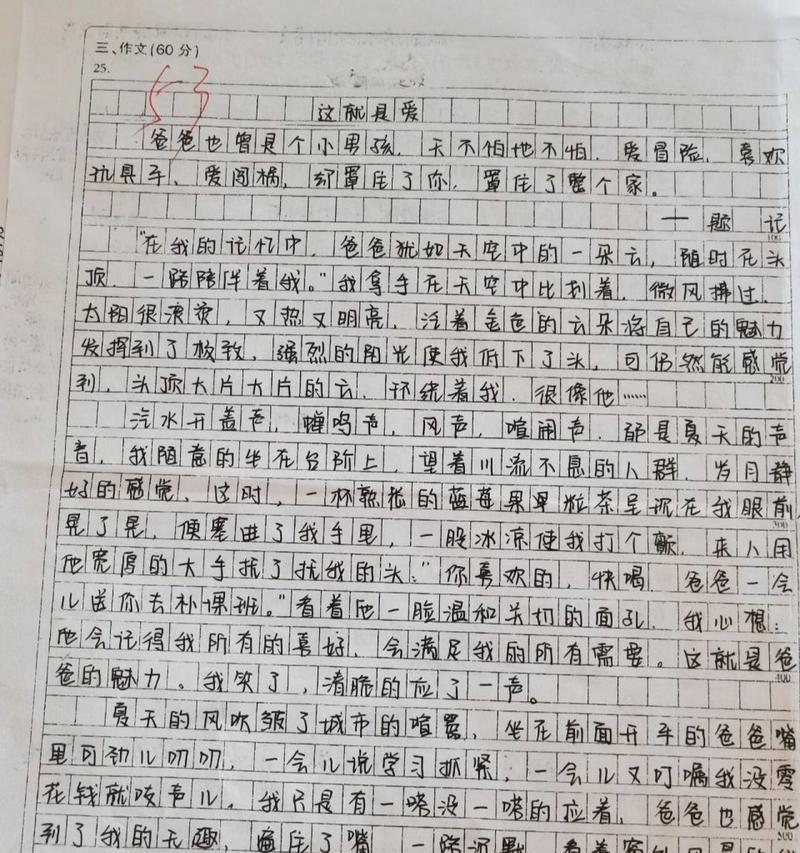 三、作文(60分)
25.
53
这就是爱
爸爸也曾是个小男孩，天不怕地不怕，爱冒险，喜欢
玩具车、爱闯祸，却罩住了你，罩住了整个家。
——题记
100
“在我的记忆中，爸爸犹如天空中的一朵云，随时在头
顶，一路陪伴着我。”我拿手在天空中比划着，微风拂过，
太阳很滚烫，又热又明亮，泛着金色的云朵将自己的魅力
发挥到了极致，强烈的阳光使我低下了头，可仍然能感觉
200
到，头顶大片大片的云，环绕着我，很像他……
汽水开盖声，蝉鸣声，风声，喧闹声，都是夏天的声
音，我随意的坐在台阶上，望着川流不息的人群，岁月静
好的感觉，这时，一杯熟悉的蓝莓果果粒茶呈现在我眼前，
300
晃了晃，便塞进了我手里，一股冰凉使我打个颤，来人用
他宽厚的大手抚了抚我的头：“你喜欢的，快喝，爸爸一会
儿送你去补课班。”看着他一脸温和关切的面孔，我心想：
他会记得我所有的喜好，会满足我的所有需要。这就是爸
400
爸的魅力。我笑了，清脆的应了一声。
夏天的风吹皱了城市的喧嚣，坐在前面开车的爸爸嘴
里可劲儿叨叨，一会儿说学习抓紧，一会儿又叮嘱我没零
花钱就吱声儿，我只是有一嗒没一嗒的应着，爸爸也感觉
500
到了我的无趣，